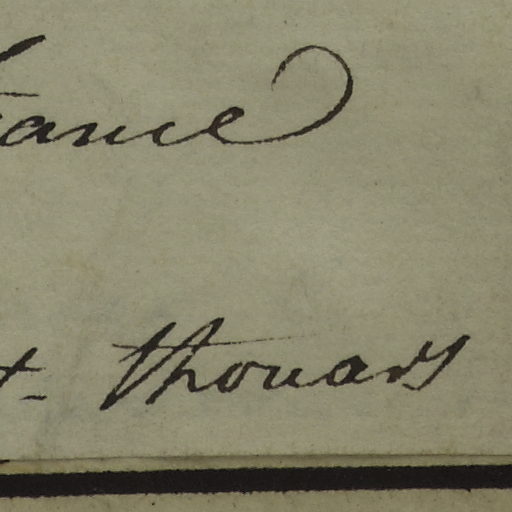 rance
t- thouars